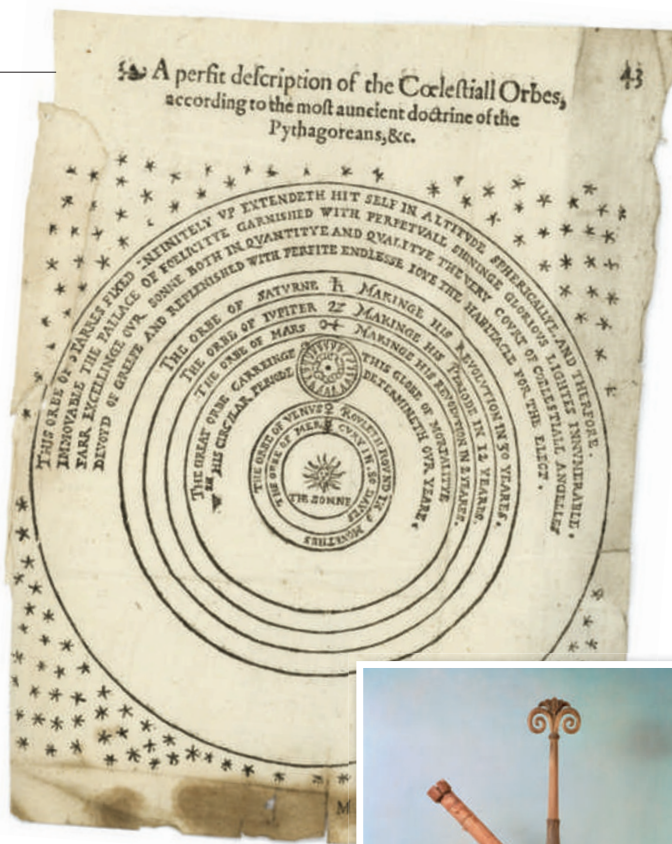 A perfit description of the Cœlestiall Orbes,
according to the most auncient doctrine of the
Pythagoreans,&c.
43
THIS ORBE OF STARRES FIXED INFINITELY VP EXTENDETH HIT SELF IN ALTITVDE SPHERICALLYE, AND THEREFORE
IMMOVABLE THE PALLACE OF FOELICITYE GARNISHED WITH PERPETVALL SHININGE GLORIOVS LIGHTES INNVMERABLE.
FARR EXCELLINGE OVR SONNE BOTH IN QVANTITYE AND QVALITYE THE VERY COVRT OF COELESTIALL ANGELLES
DEVOYD OF GREEFE AND REPLENISHED WITH PERFITE ENDLESSE IOYE THE HABITACLE FOR THE ELECT.
THE ORBE OF SATVRNE ♄ MAKINGE HIS REVOLVTION IN 30 YEARES.
THE ORBE OF IVPITER ♃ MAKINGE HIS PERIODE IN 12 YEARES.
THE ORBE OF MARS ♂ MAKINGE HIS REVOLVTION IN 2 YEARES.
THE GREAT ORBE CARREINGE THIS GLOBE OF MORTALITYE
HIS CIRCVLAR PERIODE DETERMINETH OVR YEARE.
THE ORBE OF VENVS ♀ ROVLETH ROVND IN 9 MONETHES
THE ORBE OF MERCVRY IN 80 DAYES
THE SONNE
M